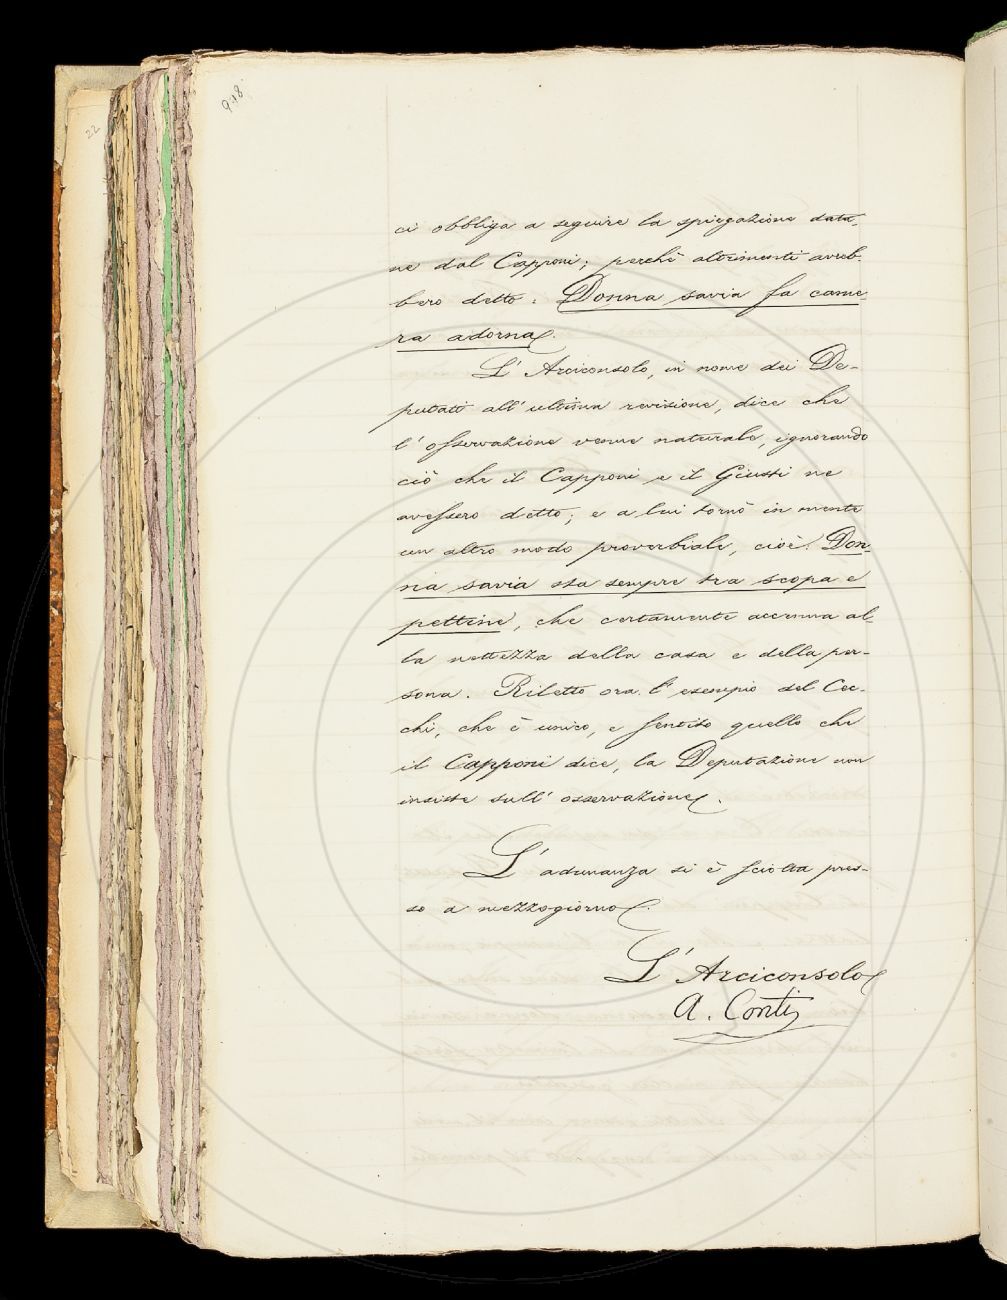 948
22
ci obbliga a seguire la spiegazione data-
ne dal Capponi; perchè altrimenti avreb-
bero detto: Donna savia fa came-
ra adorna.
L'Arciconsolo, in nome dei De-
putati all'ultima revisione, dice che
l'osservazione venne naturale, ignorando
ciò che il Capponi e il Giusti ne
avessero detto; e a lui tornò in mente
un altro modo proverbiale, cioè: Don-
na savia sta sempre tra scopa e
pettine, che certamente accenna al-
la nettezza della casa e della per-
sona. Riletto ora l'esempio del Cec-
chi, che è unico, e sentito quello che
il Capponi dice, la Deputazione non
insiste sull'osservazione.
L'adunanza si è sciolta pres-
so a mezzogiorno.
L'Arciconsolo
A. Conti